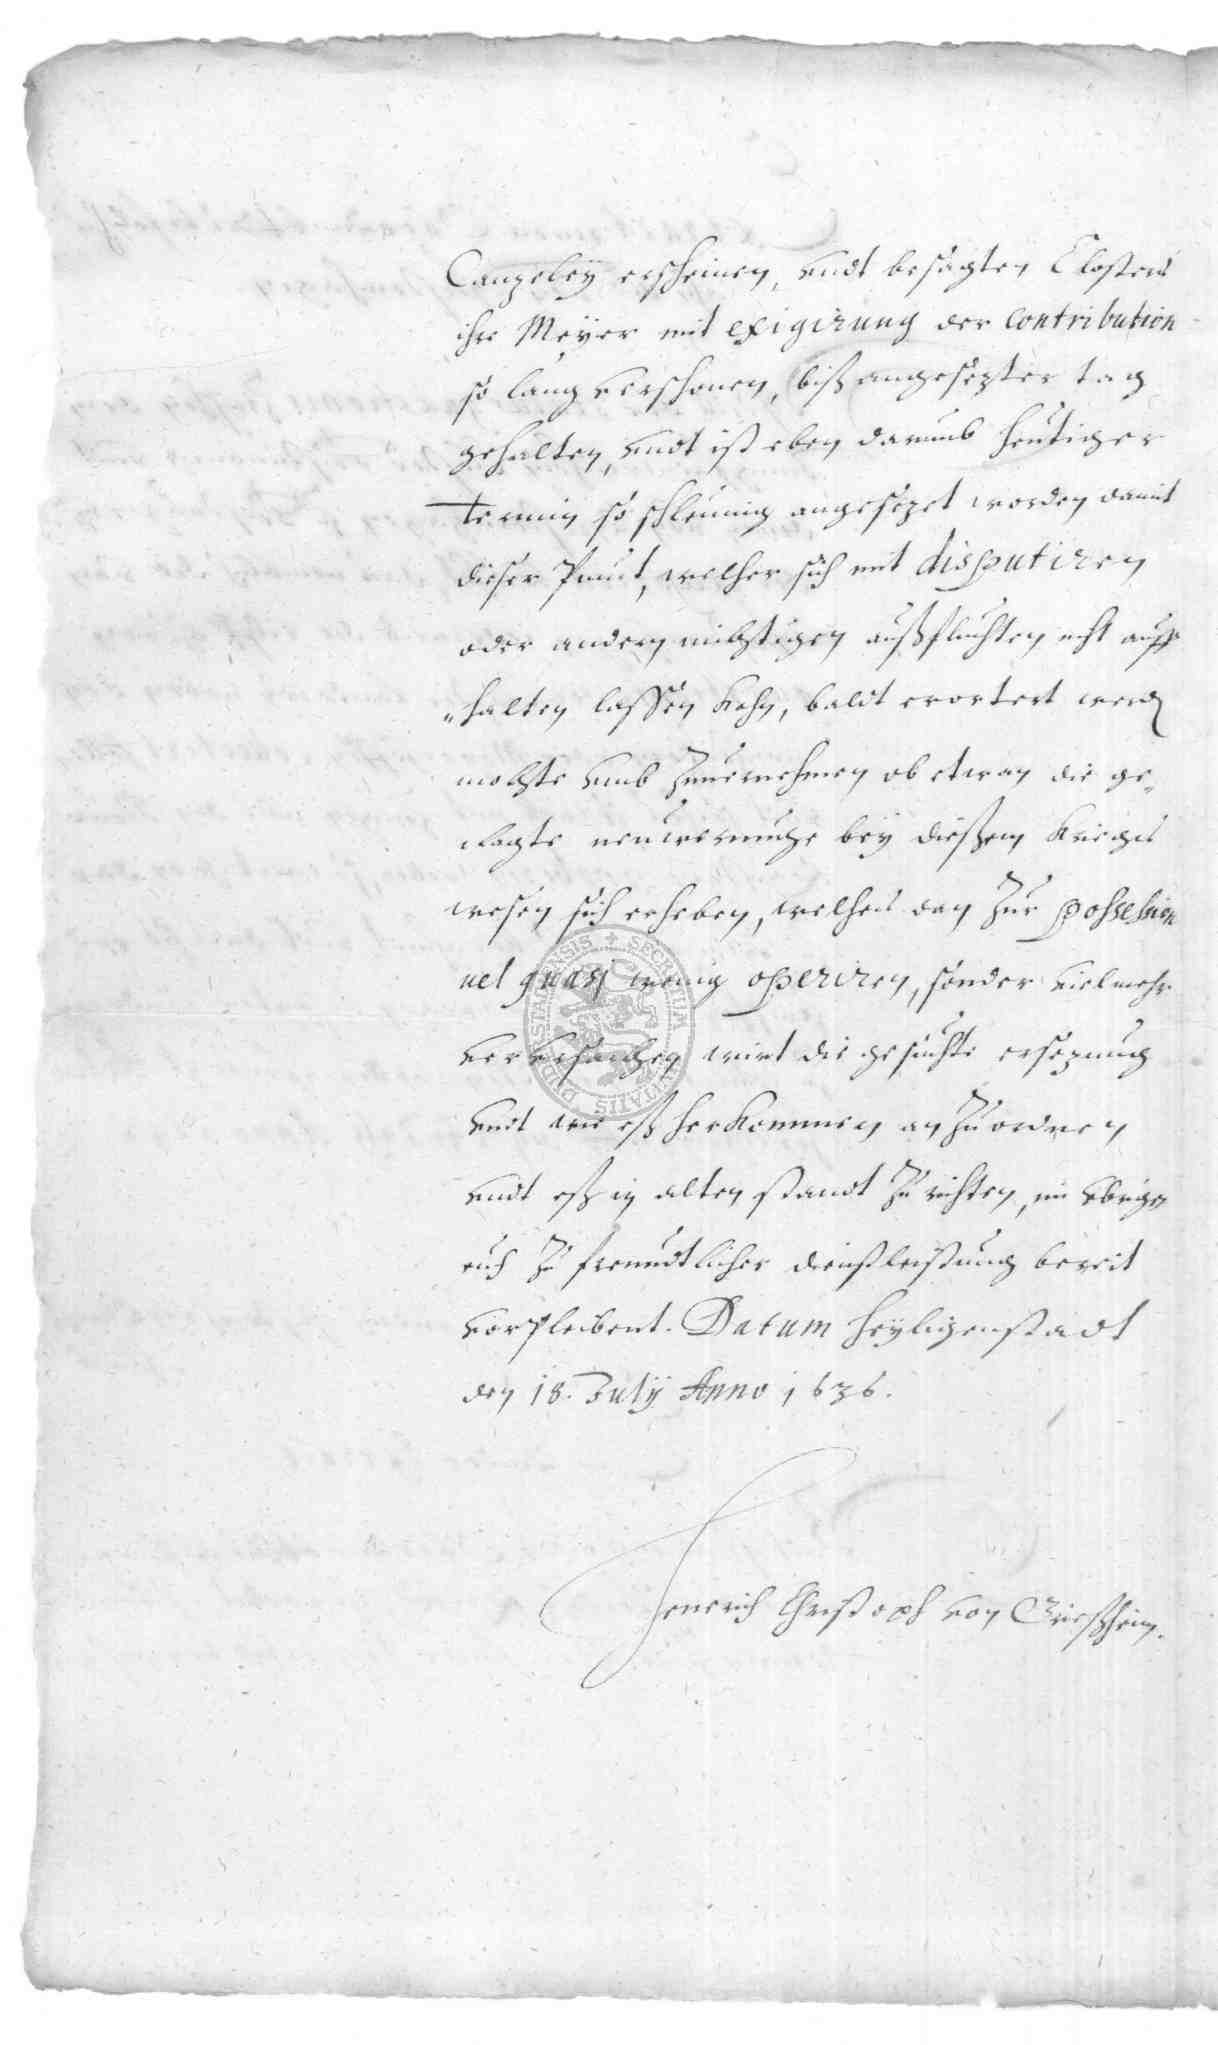 Cantzeley erscheinen, undt besagten Closters
ihre Meyer mit exigirung der contribution
so lang verschonen, biß angesetzter tag
gehalten, undt ist eben darumb heutiger
termin so schleunig angesetzet worden damit
dieser Punct, welcher sich mit disputiren
oder andern nichtigen außfluchten nicht auff-
"halten lassen kahn, baldt erortert werden
mochte umb zuvernehmen ob etwan die ge-
clagte neuwerunge bey dießem Kriegs
wesen sich erheben, welches dan zur possession
vel quasi wenig operiren, sonder vielmehr
verursachen wirt die gesuchte ersetzung
undt wie eß herkommen an zu ordnen
undt eß in alten standt zu richten, im übrigen
euch zu freundtlicher dienstleistung bereit
verpleibent. Datum Heyligenstadt
den 18. July Anno 1636.
Henrich Christoph von Grießheim.
SECRETUM CIVITATIS DUDERSTADENSIS